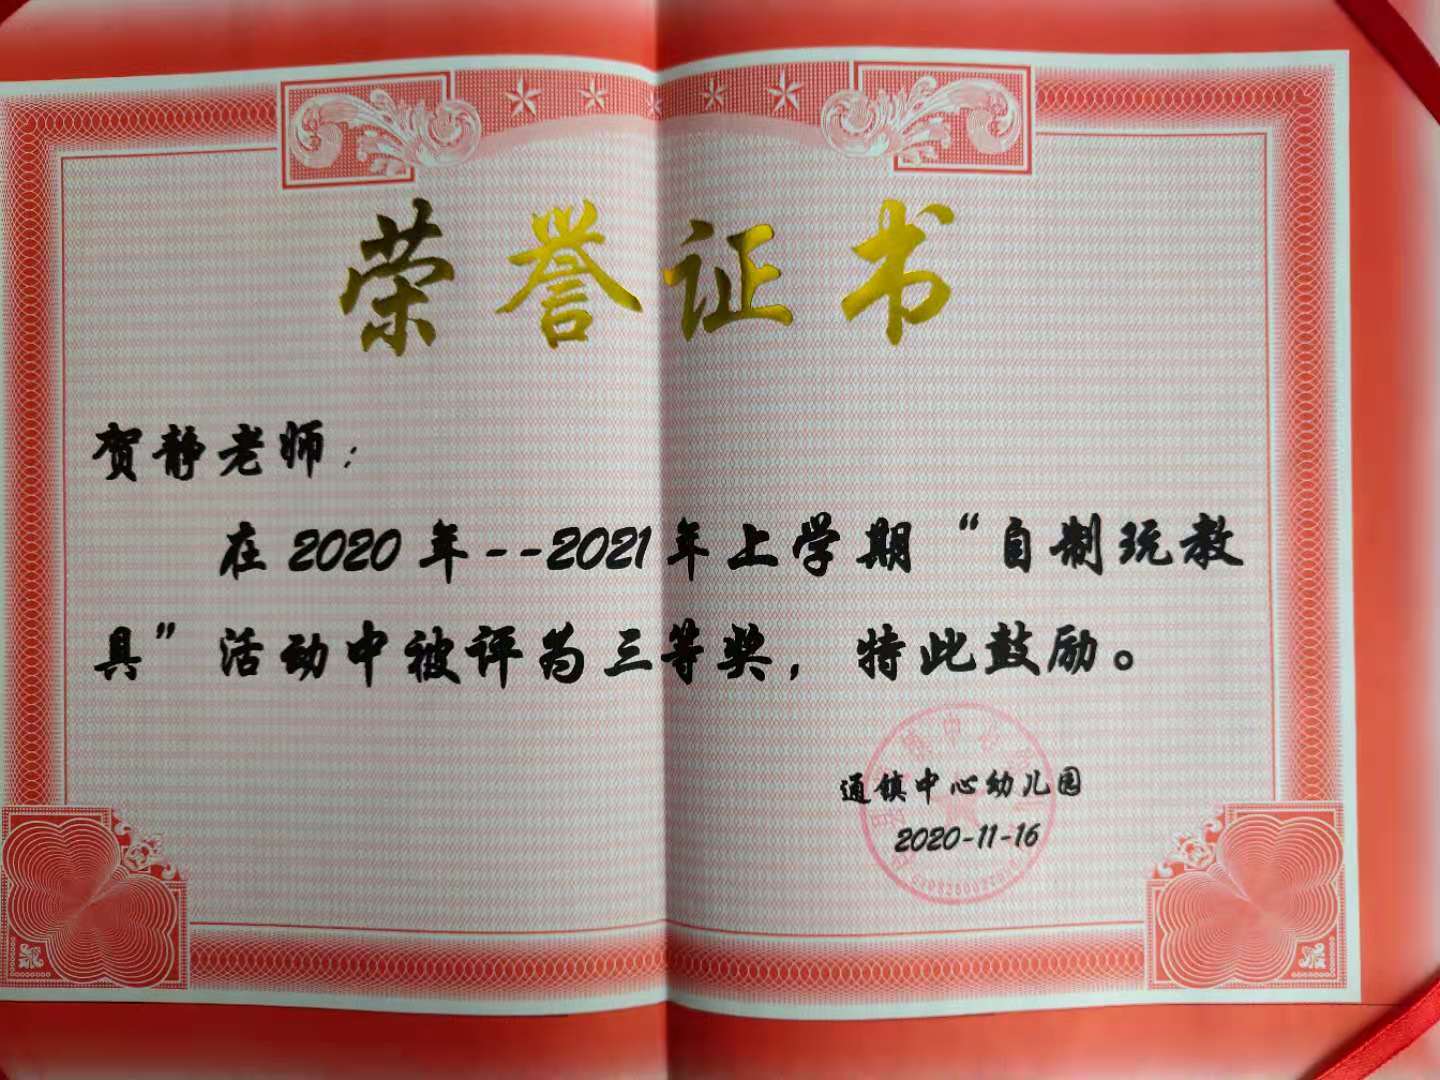 荣誉证书
贺静老师：
在2020年--2021年上学期“自制玩教
具”活动中被评为三等奖，特此鼓励。
通镇中心幼儿园
2020-11-16